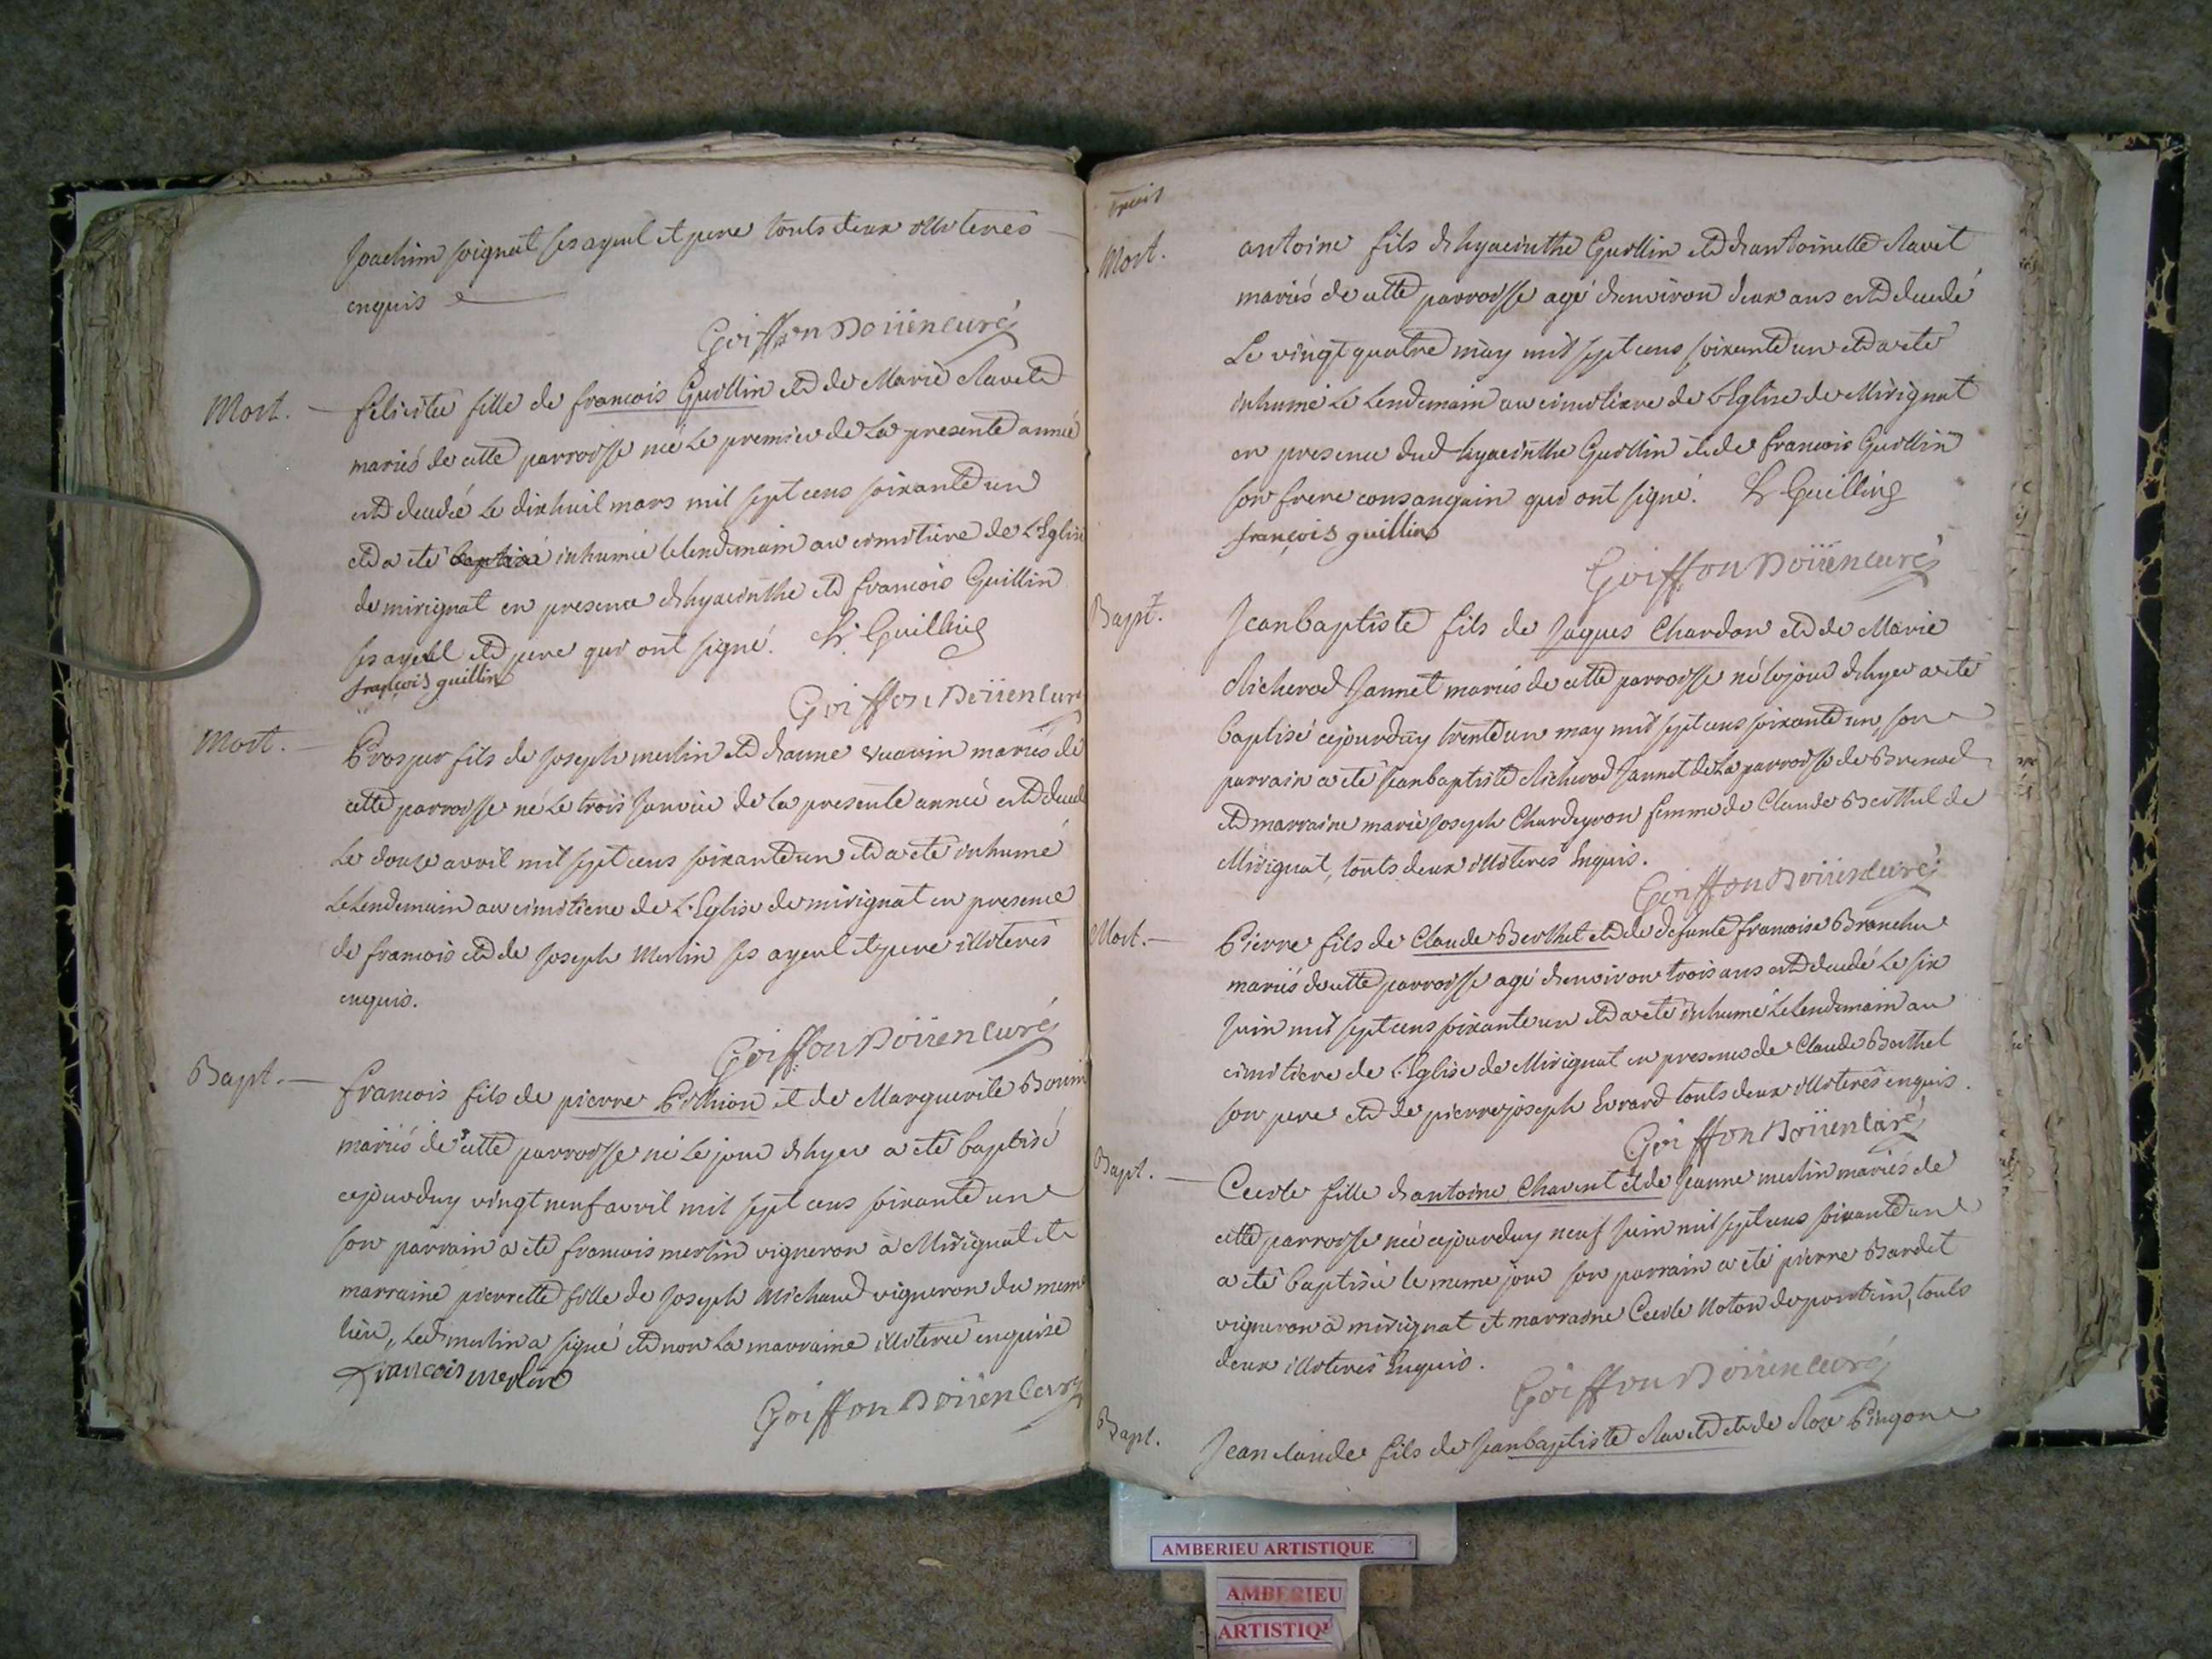 Joachim soignat ses ayeul et pere touts deux illiterés
enquis
Goiffon Doiien curé
Mort. felicitée fille de francois Guillin et de Marie Ravet
mariés de cette parroisse née le premier de la presente année
est decedée le dixhuit mars mil sept cens soixante un
et a eté baptisé inhumée le lendemain au cimetiere de l'Eglise
de mirignat en presence d'hyacinthe et francois Guillin
ses ayeul et pere qui ont signé. h. Guilling
françois guillin
Goiffon Doiien curé
Mort. Prosper fils de Joseph merlin et d'anne vuarin mariés de
cette parroisse né le trois Janvier de la presente année est deced
le douze avril mil sept cens soixante un et a eté inhumé
le lendemain au cimetiere de l'Eglise de mirignat en presence
de francois et de Joseph Merlin ses ayeul et pere illiterés
enquis.
Goiffon Doiien curé
Bapt. francois fils de pierre et de Marguerite
mariés de cette parroisse né le jour d'hyer a eté baptisé
cejourduy vingt neuf avril mil sept cens soixante un
son parrain a eté francois merlin vigneron à Mirignat et
marraine pierrette fille de Joseph Michaud vigneron du mem
lieu, led merlin a signé et non la marraine illiterée enquise
francois merlin
Goiffon Doiien curé
trois
Mort. antoine fils d'hyacinthe Guillin et d'antoinette Ravet
mariés de cette parroisse agé d'environ deux ans est decedé
Le vingt quatre may mil sept cens soixante un et a eté
inhumé le lendemain au cimetiere de l'Eglise de Mirignat
en presence dud hyacinthe Guillin et de francois Guillin
son frere consanguin qui ont signé. h Guilling
françois guillin
Goiffon Doiien curé
Bapt. Jeanbaptiste fils de Jaques Chardon et de Marie
Richerod Jannet mariés de cette parroisse né le jour d'hyer a eté
baptisé cejourduy trente un may mil sept cens soixante un, son
parrain a eté Jeanbaptiste Richerod Jannet de la parroisse de Brenod
et marraine marie Joseph Chardeyron femme de Claude Berthet de
Mirignat, touts deux illiterés Enquis.
Goiffon Doiien curé
Mort. Pierre fils de Claude Berthet et de defunte francoise Branche
mariés de cette parroisse agé d'environ trois ans est decedé le six
Juin mil sept cens soixante un et a eté inhumé le lendemain au
cimetiere de l'Eglise de Mirignat en presence de Claude Berthet
son pere et de pierrejoseph Evrard touts deux illiterés enquis.
Goiffon Doiien curé
Bapt. Cecile fille d'antoine Charvet et de Jeanne merlin mariés de
cette parroisse née cejourduy neuf Juin mil sept cens soixante un
a eté baptisée le meme jour son parrain a eté pierre Bardet
vigneron à mirignat et marraine Cecile Noton de pontcin, touts
deux illiterés Enquis.
Goiffon Doiien curé
Bapt. Jean claude fils de Jeanbaptiste Ravet et de Roze Pingon
AMBERIEU ARTISTIQUE
AMBERIEU
ARTISTIQU